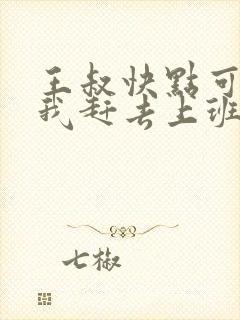 王叔快點可
我赶去上班
七椒